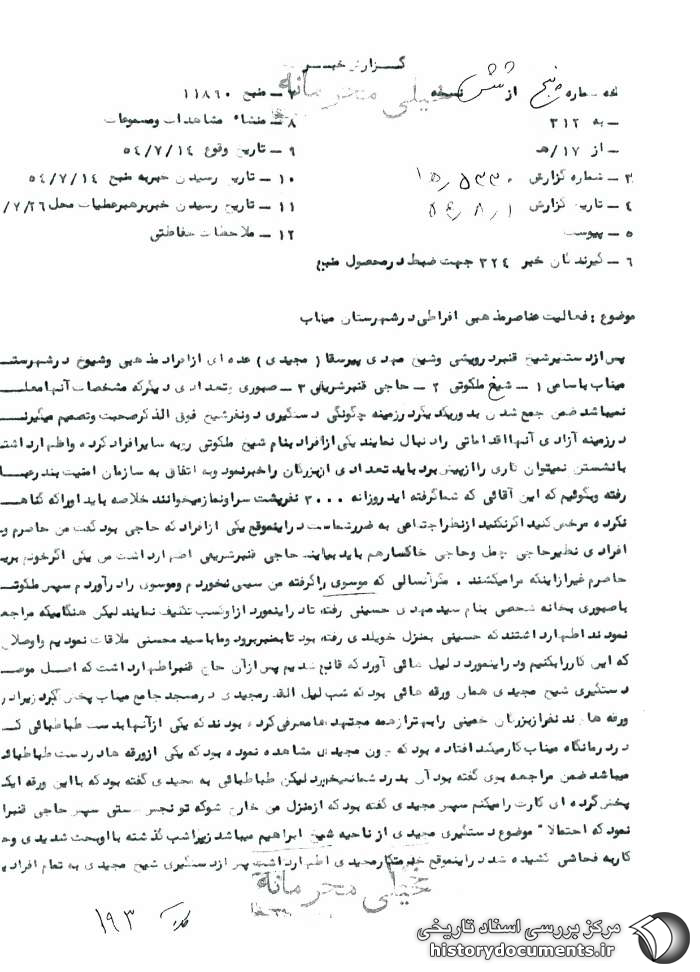 گزارش خبر
خیلی محرمانه
نسخه شماره پنج از شش نسخه
۷ ـ منبع ۱۱۸۶۰
۱ ـ به ۳۱۲
۸ ـ منشاء مشاهدات و مسموعات
۲ ـ از ۱۷/هـ
۹ ـ تاریخ وقوع ۵۴/۷/۱۴
۳ ـ شماره گزارش
۱۰ ـ تاریخ رسیدن خبر به منبع ۵۴/۷/۱۴
۴ ـ تاریخ گزارش ۵۴/۸/۱
۱۱ ـ تاریخ رسیدن خبر برهبر عملیات محل ۷/۲۶/
۵ ـ پیوست
۱۲ ـ ملاحظات حفاظتی
۶ ـ گیرندگان خبر ۳۲۴ جهت ضبط در محصول منبع
موضوع : فعالیت عناصر مذهبی افراطی در شهرستان میناب
پس از دستگیر شیخ قنبر درویشی وشیخ مهدی پیرسقا (مجیدی) عده ای از افراد مذهبی وشیوخ در شهرستـ
میناب باسامی ۱ ـ شیخ ملکوتی ۲ ـ حاجی قنبر شریفی ۳ ـ صبوری وتعدادی دیگر که مشخصات آنها معلـ
نمیباشد ضمن جمع شدن بدور یکدیگر در زمینه چگونگی دستگیری دونفر شیخ فوق الذکر صحبت وتصمیم میگیرنـ
در زمینه آزادی آنها اقداماتی را دنبال نمایند یکی از افراد بنام شیخ ملکوتی رو به سایر افراد کرده واظهار داشتـ
بانشستن نمیتوان کاری را از پیش برد باید تعدادی از بزرگان را خبر نمود وبه اتفاق به سازمان امنیت بندرعبا
رفته وبگوئیم که این آقائی که شما گرفته اید روزانه ۳۰۰۰ نفر پشت سر او نماز میخوانند خلاصه باید او را که گناهـ
نکرده مرخص کنید اگر نکنید از نظر اجتماعی به ضرر شماست در اینموقع یکی از افراد که حاجی بود گفت من حاضرم و
افرادی نظیر حاجی چمل وحاجی خاکسار هم باید بیایند حاجی قنبر شریفی اظهار داشت من یکی اگر خونم بریـ
حاضرم غیر از اینکه مرا میکشند . مگر آنسالی که موسوی را گرفته من سیلی نخوردم وموسوی را در آوردم سپس ملکوتـ
با صبوری بخانه شخصی بنام سید مهدی حسینی رفته تا در اینمورد از او کسب تکلیف نمایند لیکن هنگامیکه مراجعـ
نمودند اظهار داشتند که حسینی بمنزل خویلدی رفته بود تا بمنبر برود وما با سید محسنی ملاقات نمودیم واوصلاح
که این کار را بکنیم ودر اینمورد دلیل هائی آورد که قانع شدیم پس از آن حاج قنبر اظهار داشت که اصل موضـ
دستگیری شیخ مجیدی همان ورقه هائی بود که شب لیل القدر مجیدی در مسجد جامع میناب پخش کرد زیرا در
ورقه ها چند نفر از بزرگان خمینی را بهتر از همه مجتهدها معرفی کرده بودند که یکی از آنها بدست طباطبائی کـ
در درمانگاه میناب کار میکند افتاده بود که چون مجیدی مشاهده نموده بود که یکی از ورقه ها در دست طباطبائی
میباشد ضمن مراجعه بوی گفته بود آن بدرد شما نمیخورد لیکن طباطبائی به مجیدی گفته بود که با این ورقه ایکـ
پخش کرده ای کارت را میکنم سپس مجیدی گفته بود که از منزل من خارج شو که تو نجس هستی سپس حاجی قنبر ا
نمود که احتمالا" موضوع دستگیری مجیدی از ناحیه شیخ ابراهیم میباشد زیرا شب گذشته با او بحث شدیدی وحـ
کار به فحاشی کشیده شد در اینموقع خدمتکار مجیدی اظهار داشت پس از دستگیری شیخ مجیدی به تمام افراد
خیلی محرمانه
۱۹۳
مرکز بررسی اسناد تاریخی
historydocuments.ir